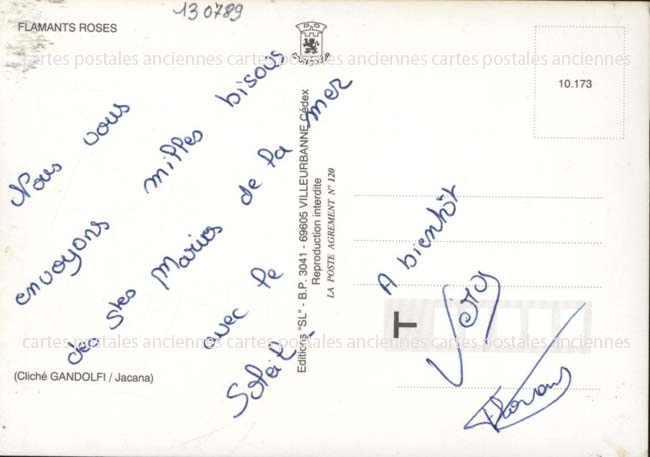 130789
FLAMANTS ROSES
cartes postales anciennes cartes postales anciennes cartes postales anciennes
10.173
Nous vous
envoyons milles bisous
des Stes Maries de la mer
avec le
Soleil.
Editions "SL" - B.P. 3041 - 69605 VILLEURBANNE Cédex
Reproduction interdite
LA POSTE AGREMENT N° 120
A bientôt
T
cartes postales anciennes cartes postales anciennes cartes postales anciennes
(Cliché GANDOLFI / Jacana)